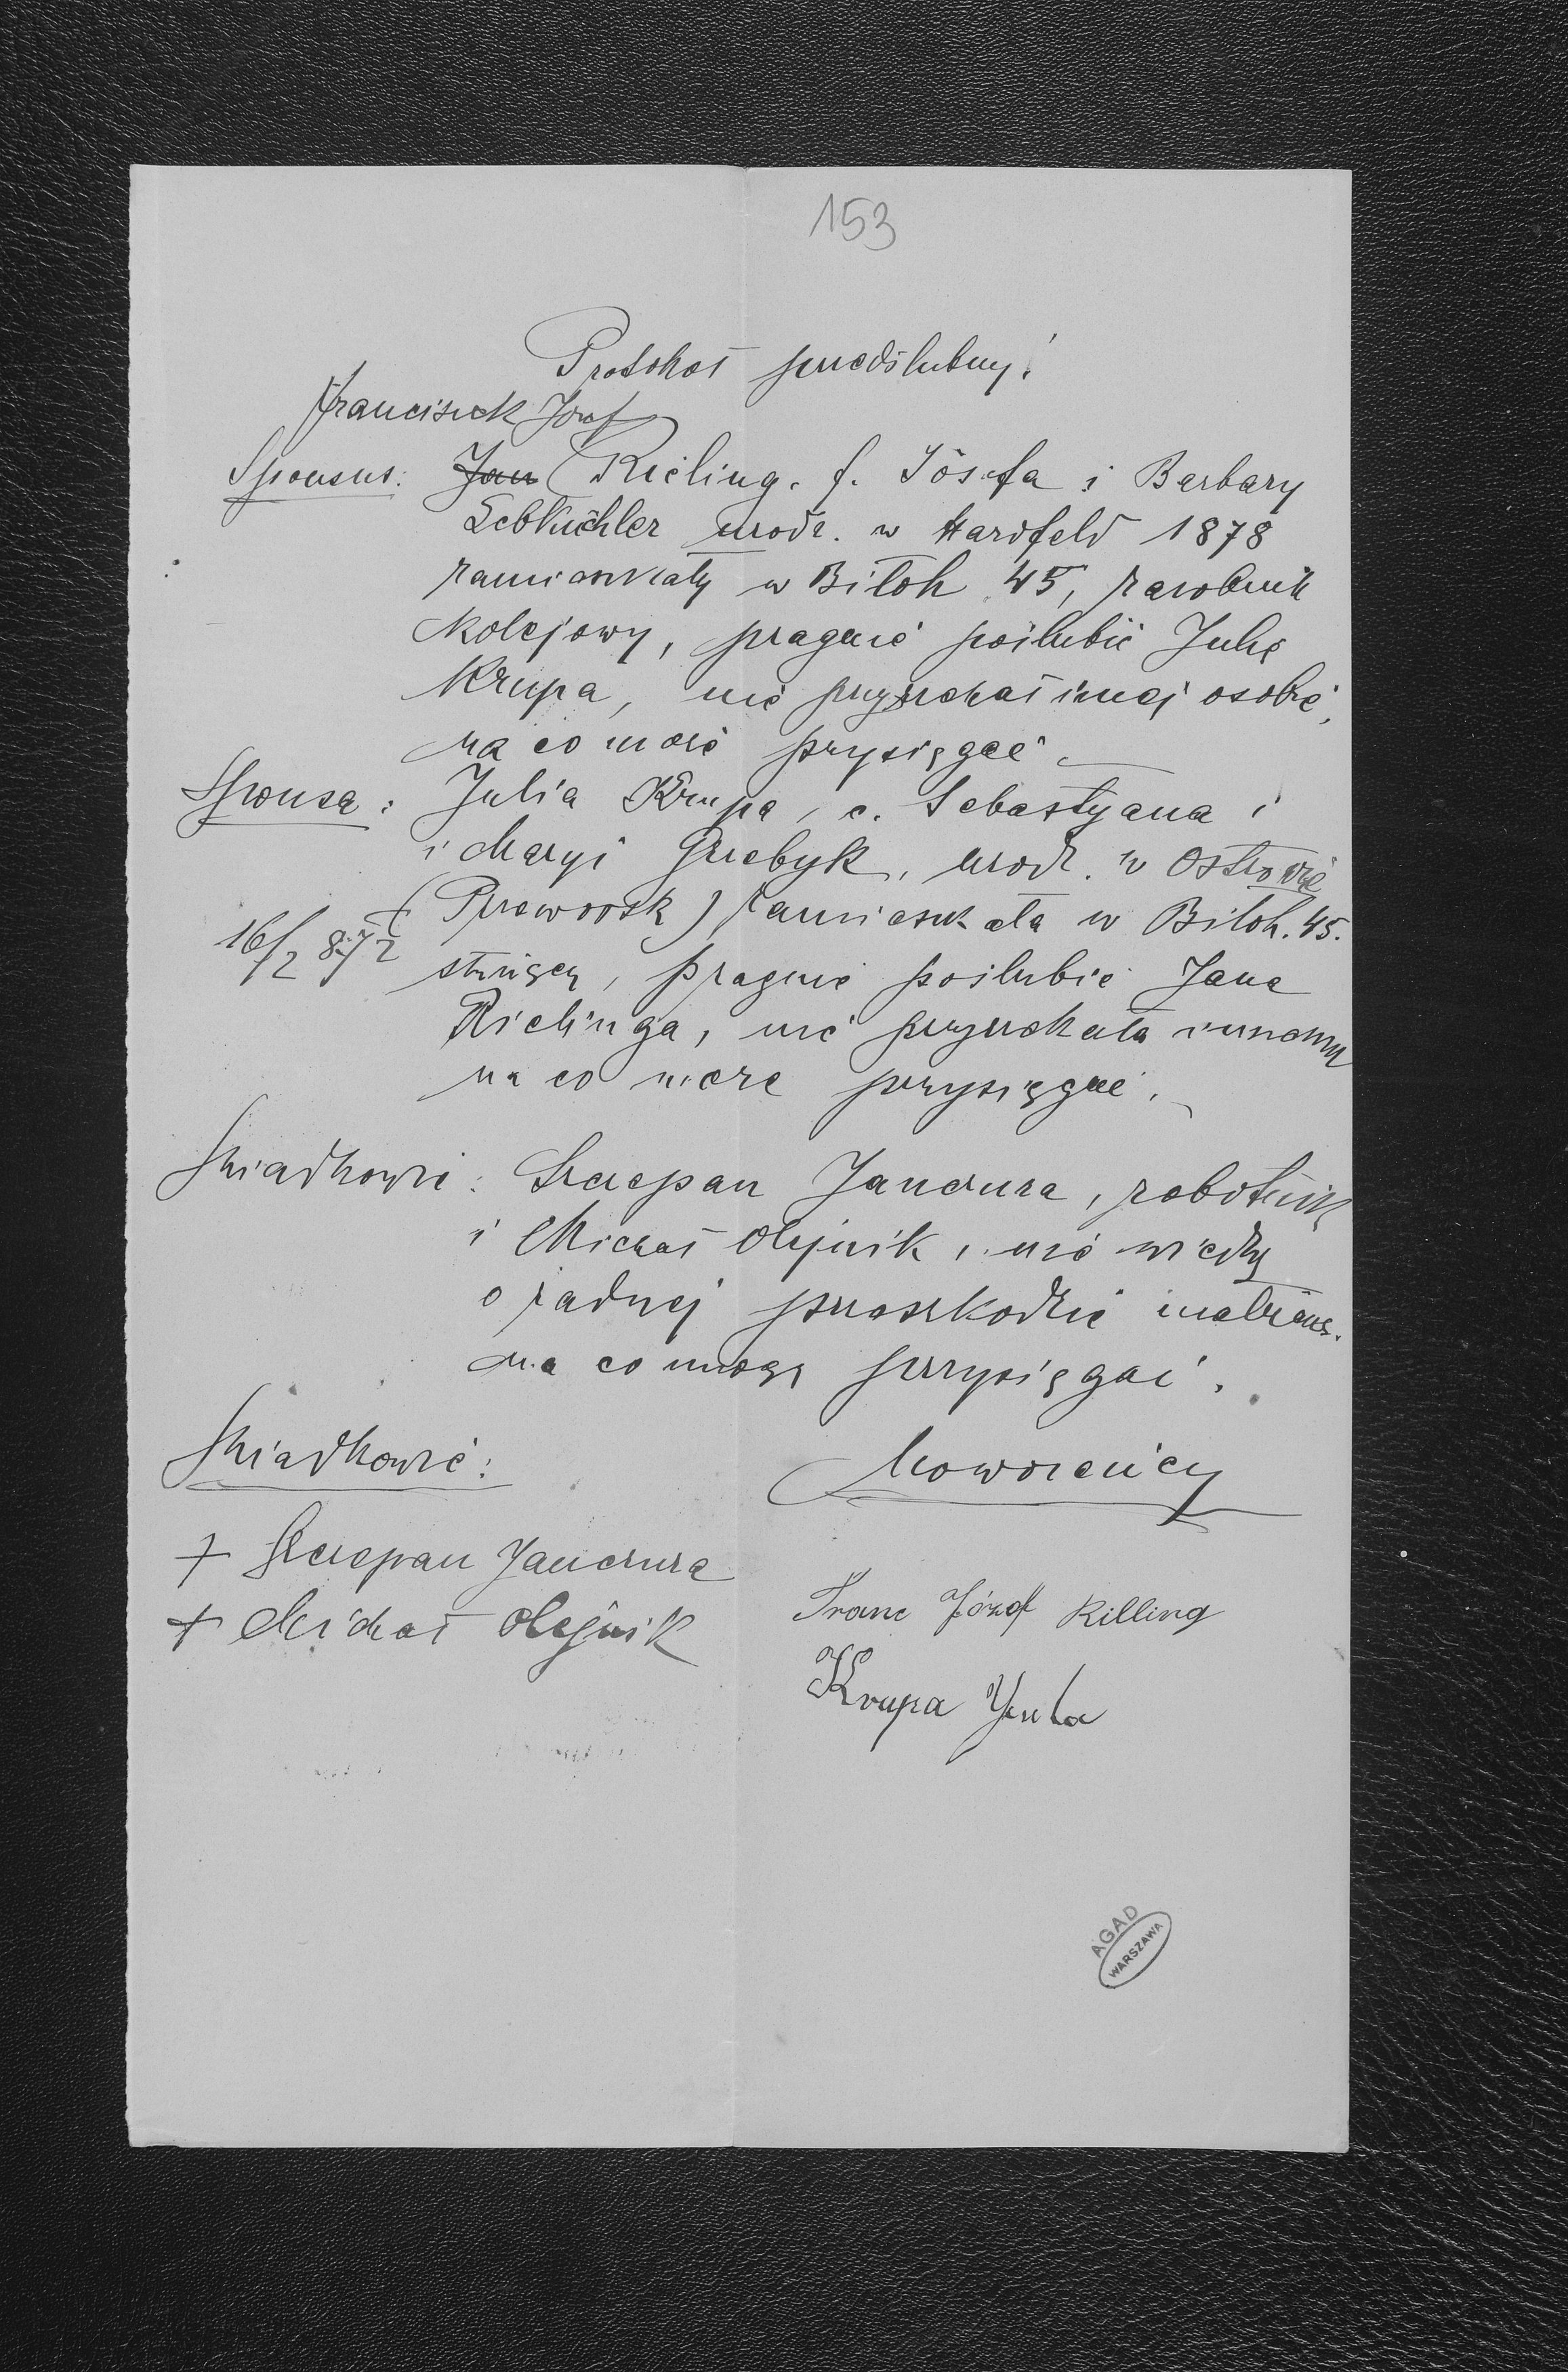 153
Protokół przedślubny!
Franciszek Józef
Sponsus: Jan Rieling. f. Józefa i Barbary
Lebküchler urodz. w Hardfeld 1878
zamieszkały w Biłoh. 45, zarobnik
kolejowy, pragnie poślubić Julię
Krupa, nie przyrzekał innej osobie,
na co może przysięgać
Sponsa: Julia Krupa, c. Sebastyana i
i Maryi Grzebyk, urodz. w Ostrowie
(Przeworsk) zamieszkała w Biłoh. 45.
16/2 872
służąca, pragnie poślubić Jana
Rielinga, nie przyrzekała innemu
na co może przysięgać.
Świadkowie: Szczepan Janczura, robotnik
i Michał Olejnik, nie wiedzą
o żadnej przeszkodzie małżeńs.
na co mogą przysięgać.
Świadkowie:
Nowożeńcy
+ Szczepan Janczura
+ Michał Olejnik
Franc Józef Killing
Krupa Yula
AGAD
WARSZAWA